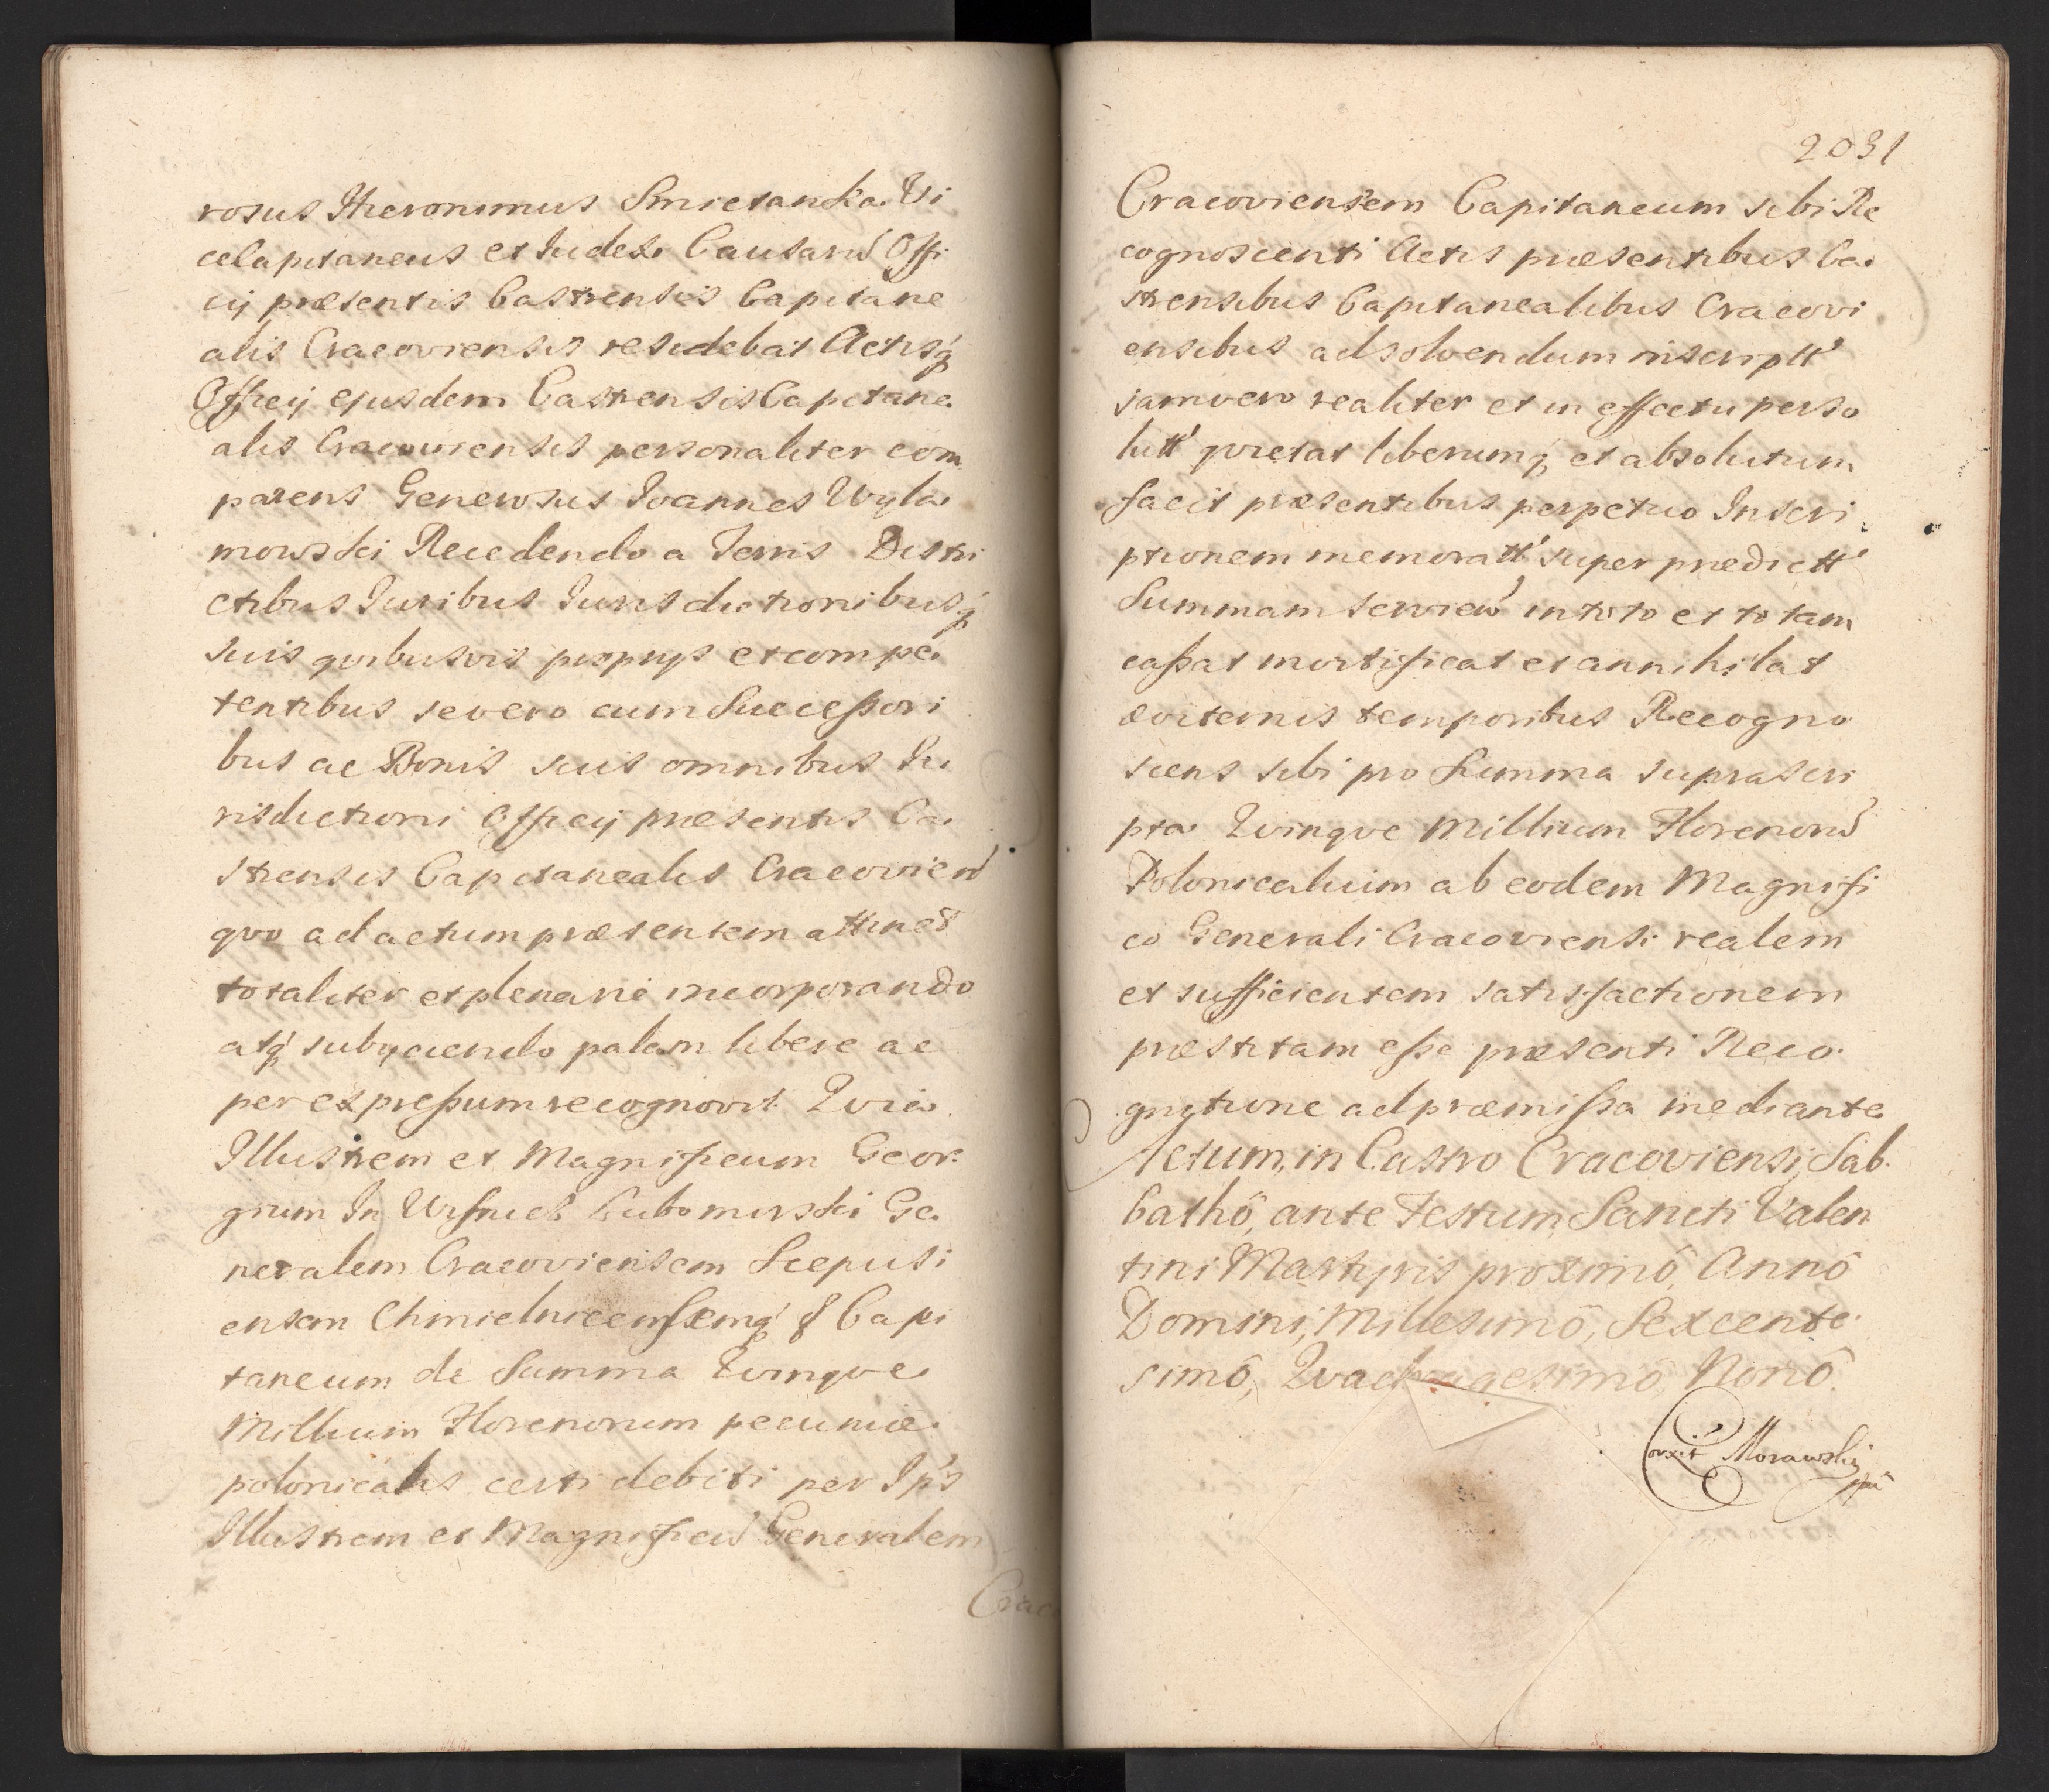 rosus Hieronimus Smietanka Vi
cecapitaneus et Iudex Causarũ Offi
cij præsentis Castrensis Capitane
alis Cracoviensis residebat Actisq́
Officij ejusdem Castrensis Capitane
alis Cracoviensis personaliter com
parens Generosus Ioannes Wyla
mowski Recedendo a Terris Distri
ctibus Iuribus Iurisdictionibusq́
suis qvibusvis proprijs et compe
tentibus se vero cum Successori
bus ac Bonis suis omnibus Iu
risdictioni Officij præsentis Ca
strensis Capitanealis Cracovień
qvo ad actum præsentem attinet
totaliter et plenarie incorporando
atq́ subijciendo palam libere ac
per expressum recognovit Qvia
Illustrem et Magnificum Geor
gium In Wisnicz Lubomirski Ge
neralem Cracoviensem Scepusi
ensem Chmielnicensemq́ & Capi
taneum de Summa Qvinqve
Millium Florenorum pecuniæ
polonicalis certi debiti per Ip̃s
Illustrem et Magnificũ Generalem
Crac
2031
Cracoviensem Capitaneum sibi Re
cognoscenti Actis præsentibus Ca
strensibus Capitanealibus Cracovi
ensibus ad solvendum inscriptt'
jam vero realiter et in effectu perso
lutt' qvietat liberumq́ et absolutum
facit præsentibus perpetuo Inscri
ptionem memoratt' super prædictt'
Summam servień in toto et totam
cassat mortificat et annihilat
æviternis temporibus Recogno
scens sibi pro Summa suprascri
pta Qvinqve Millium Florenorũ
Polonicalium ab eodem Magnifi
co Generali Cracoviensi realem
et sufficientem satisfactionem
præstitam esse præsenti Reco
gnitione ad præmissa mediante
Actum, in Castro Cracoviensi, Sab
bathô, ante Festum, Sancti Valen
tini Martyris proximô, Annô
Domini, Millesimô, Sexcente
simô, Qvadragesimô, Nonô.
Correxit Morawski
mp